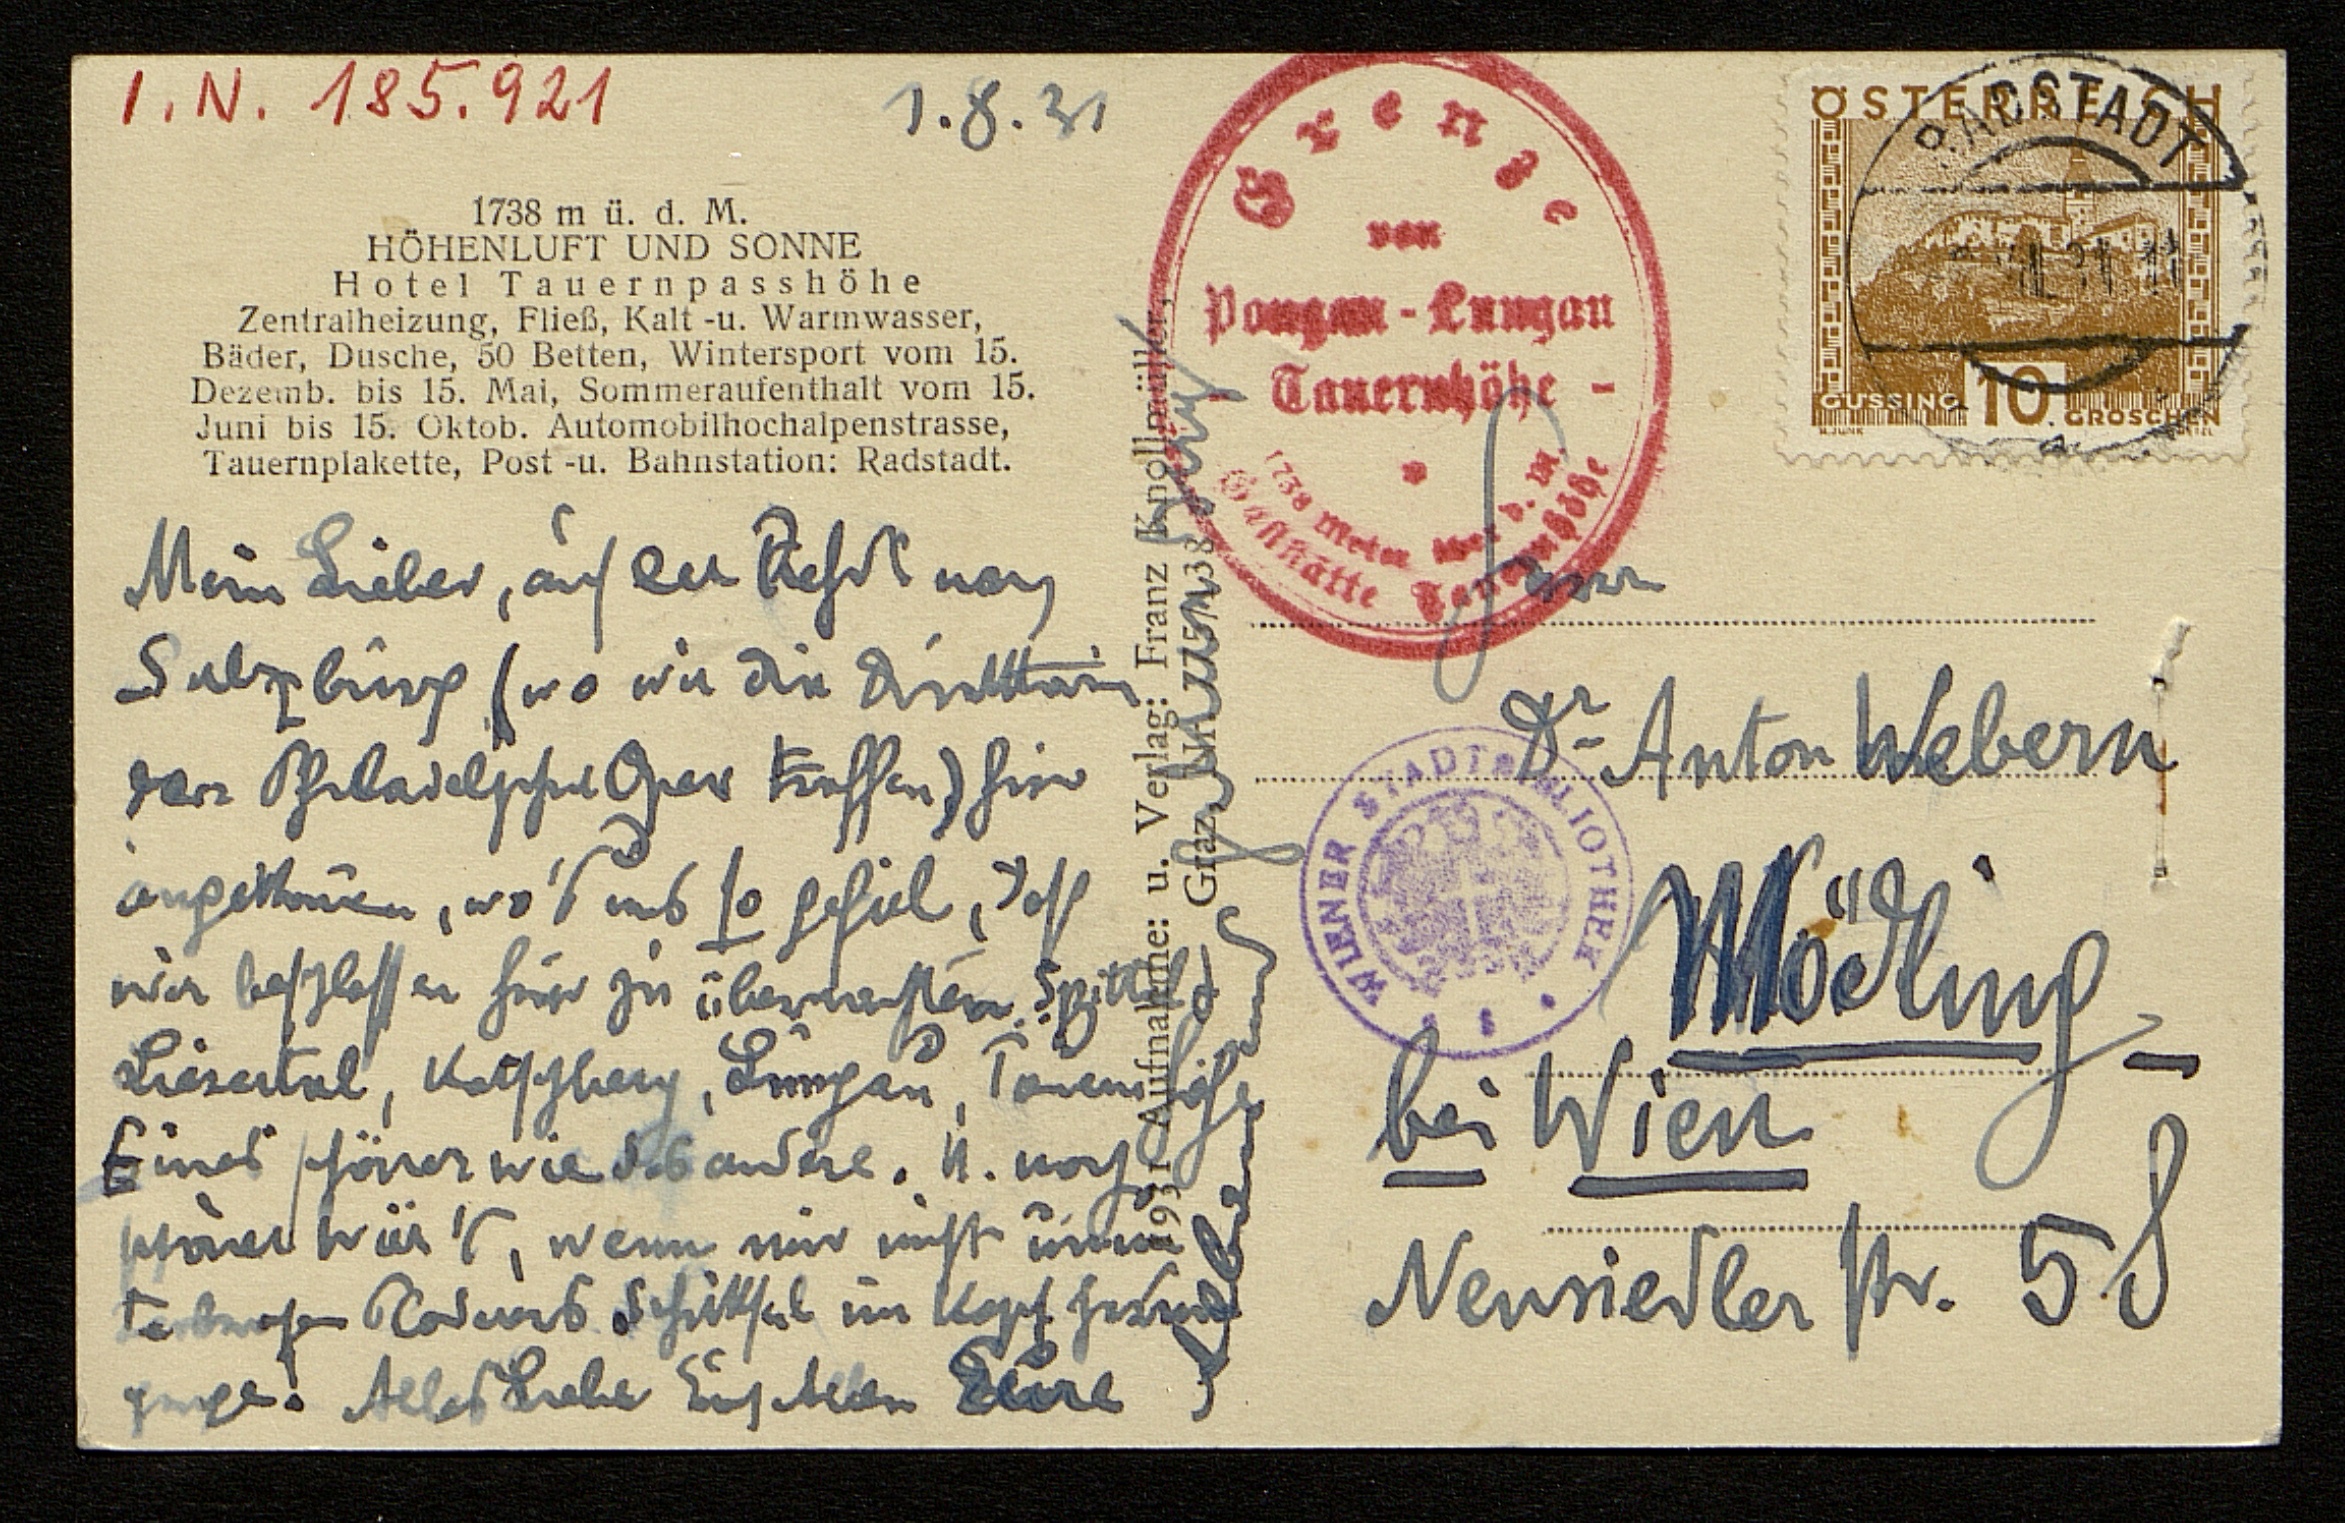 I.N. 185.921
1.8.31
1738 m ü. d. M.
HÖHENLUFT UND SONNE
Hotel Tauernpasshöhe
Zentralheizung, Fließ, Kalt -u. Warmwasser,
Bäder, Dusche, 50 Betten, Wintersport vom 15.
Dezemb. bis 15. Mai, Sommeraufenthalt vom 15.
Juni bis 15. Oktob. Automobilhochalpenstrasse,
Tauernplakette, Post -u. Bahnstation: Radstadt.
Mein Lieber, auf der nach
Salzburg (wo wir die
der Philadelphia Oper treffen) hier
angekommen, wo's uns so gefiel, daß
wir beschlossen hier zu übernachten. Spittal,
Liesertal, Katschberg, Lungau, Tauernhöhe
Eines schöner wie das andere. U. noch
schöner wär's, wenn mir nicht
Schicksal im Kopf
ginge. Alles Liebe Euch Allen Eure
1931 Aufnahme: u. Verlag: Franz Knollmüller,
Graz
38
Grenze
von
Pongau - Lungau
- Tauernhöhe -
1738 Meter über d. M.
Gaststätte Tauernhöhe
ÖSTERREICH
RADSTADT
GÜSSING 10 GROSCHEN
Herrn
Dr Anton Webern
WIENER STADTBIBLIOTHEK
Mödling
bei Wien
Neusiedlerstr. 58